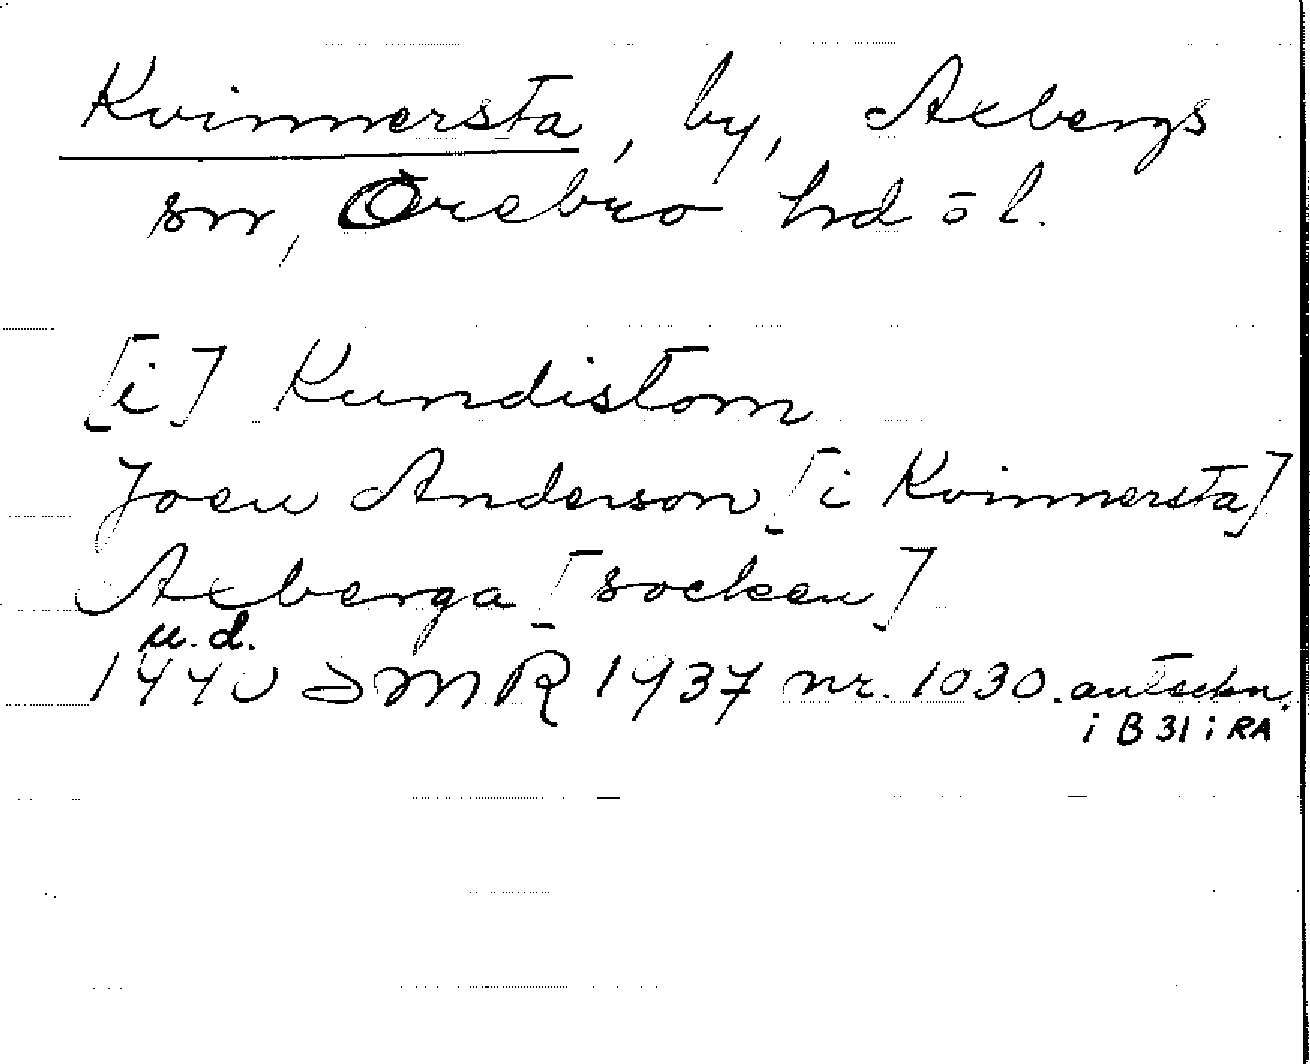 Kvinnersta, by, Axbergs
sn, Örebro hd o l.
[i] Kundistom
Joen Anderson [i Kvinnersta]
Axberga [socken]
u.d.
1440 SMR 1937 nr. 1030. anteckn.
i B 31 i RA